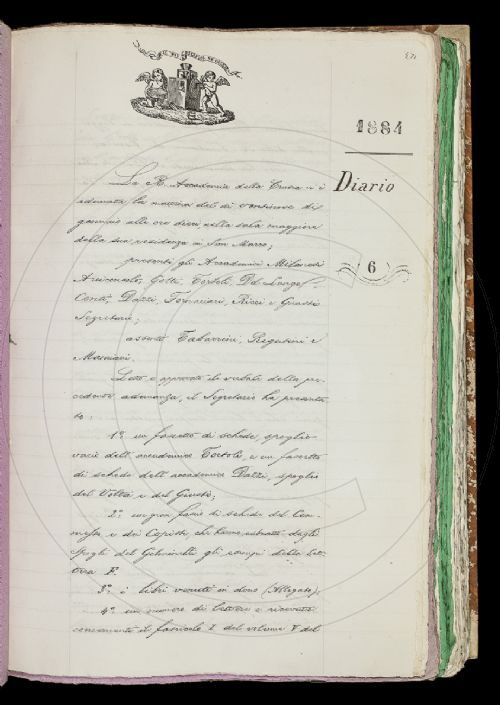 IL PIÙ BEL FIOR NE COGLIE
1884
Diario
6
La R. Accademia della Crusca si è
adunata la mattina del dì ventinove di
gennaio alle ore dieci nella sala maggiore
della sua residenza in San Marco;
presenti gli Accademici Milanesi
Arciconsolo, Gotti, Tortoli, Del Lungo,
Conti, Dazzi, Tommasi, Rizzi e Guasti
Segretario;
assenti Tabarrini, Rigutini e
Letto e approvato il verbale della pre-
cedente adunanza, il Segretario ha presenta-
to:
1.º un fascetto di schede, spoglio
dell'accademico Tortoli, e un fascetto
di schede dell'accademico Dazzi, spoglio
del Volta e del Giusti;
2.º un gran fascio di schede del Com-
messo e dei Copisti, che hanno estratti dagli
spogli del Gelsinelli gli esempi della let-
tera F.
3.º i libri venuti in dono (Allegato);
4.º un numero di lettere e ricevute
concernenti il fascicolo I del volume V del